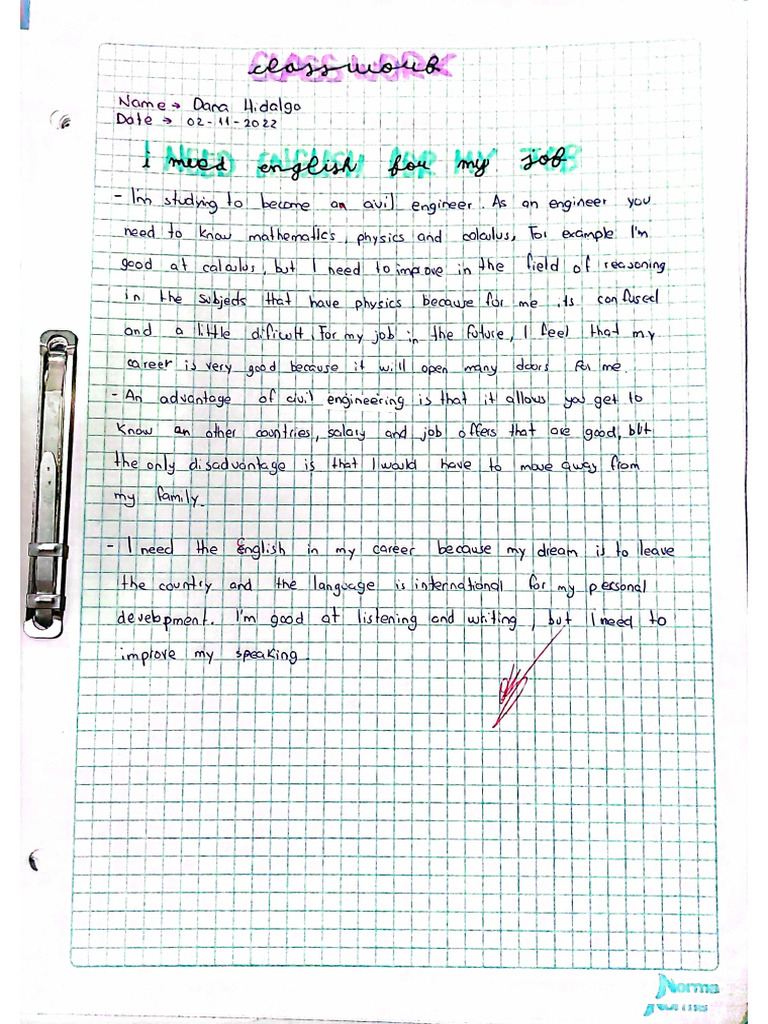 classwork
Name → Dana Hidalgo
Date → 02-11-2022
i need english for my job
- I'm studying to become an civil engineer. As an engineer you
need to know mathematics, physics and calculus, For example I'm
good at calculus, but I need to improve in the field of reasoning
in the subjects that have physics because for me its confused
and a little dificult. For my job in the future, I feel that my
career is very good because it will open many doors for me.
- An advantage of civil engineering is that it allows you get to
know an other countries, salary and job offers that are good, but
the only disadvantage is that I would have to move away from
my family.
- I need the English in my career because my dream is to leave
the country and the language is international for my personal
development. I'm good at listening and writing, but I need to
improve my speaking.
Norma
Norma